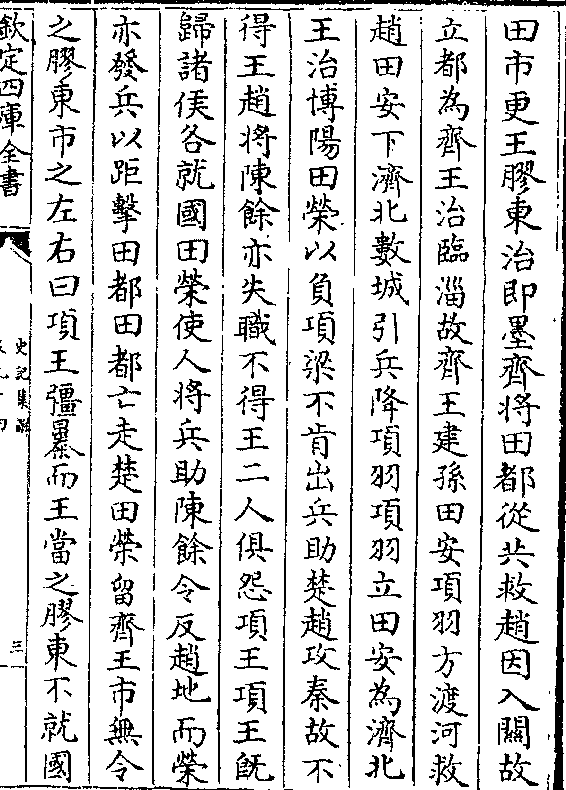 田市更王膠東治即墨齊將田都從共救趙因入關故
立都為齊王治臨淄故齊王建孫田安項羽方渡河救
趙田安下濟北數城引兵降項羽項羽立田安為濟北
王治博陽田榮以負項梁不肯出兵助楚趙攻秦故不
得王趙將陳餘亦失職不得王二人俱怨項王項王既
歸諸侯各就國田榮使人將兵助陳餘令反趙地而榮
亦發兵以距擊田都田都亡走楚田榮留齊王市無令
之膠東市之左右曰項王彊暴而王當之膠東不就國
欽定四庫全書
史記集解
三